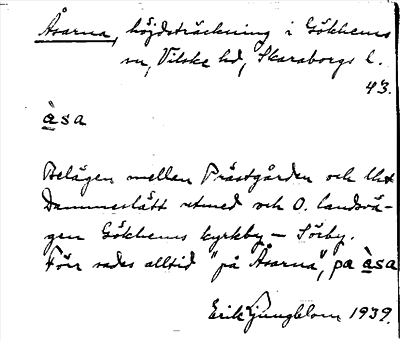 Åsarna, höjdsträckning i Gökhems
sn, Vilske hd, Skaraborgs l.
43.
àsa
Belägen mellan Prästgården och
Dammeslätt utmed och O. landsvä-
gen Gökhems kyrkby – Sörby.
Förr sades alltid "på Åsarna", pa àsa
Erik Ljungblom 1939.